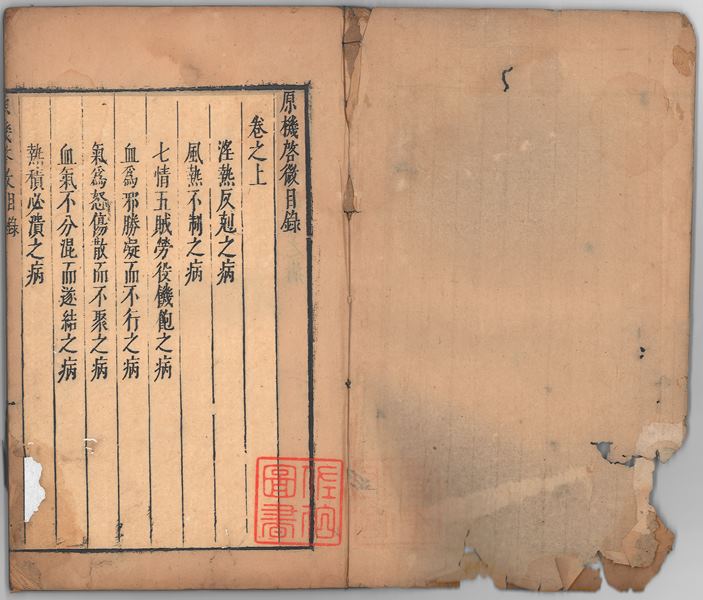 原機啓微目錄
卷之上
淫熱反剋之病
風熱不制之病
七情五賊勞役饑飽之病
血爲邪勝凝而不行之病
氣爲怒傷散而不聚之病
血氣不分混而遂結之病
熱積必潰之病
圖書